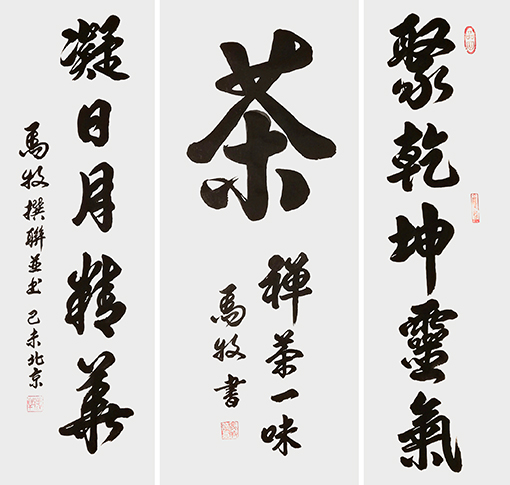 聚乾坤靈氣
茶
禅茶一味
馬牧書
凝日月精華
馬牧撰聯並书 己未北京